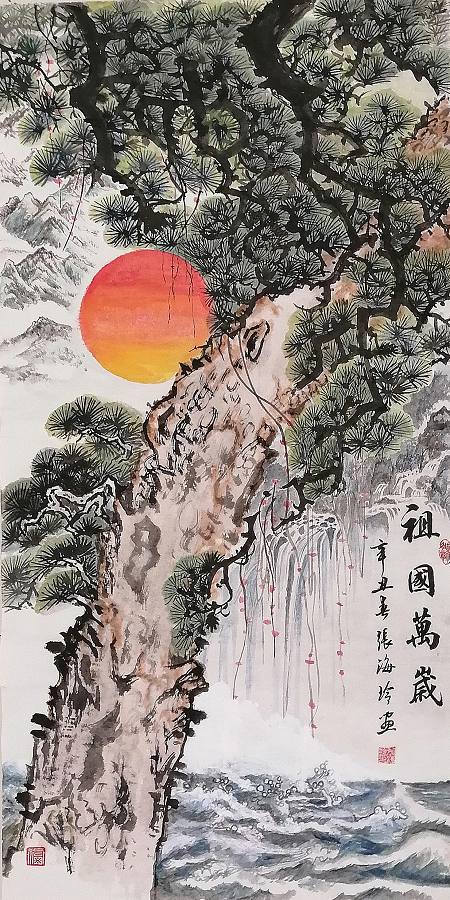 祖國萬歲
辛丑春張海玲畫